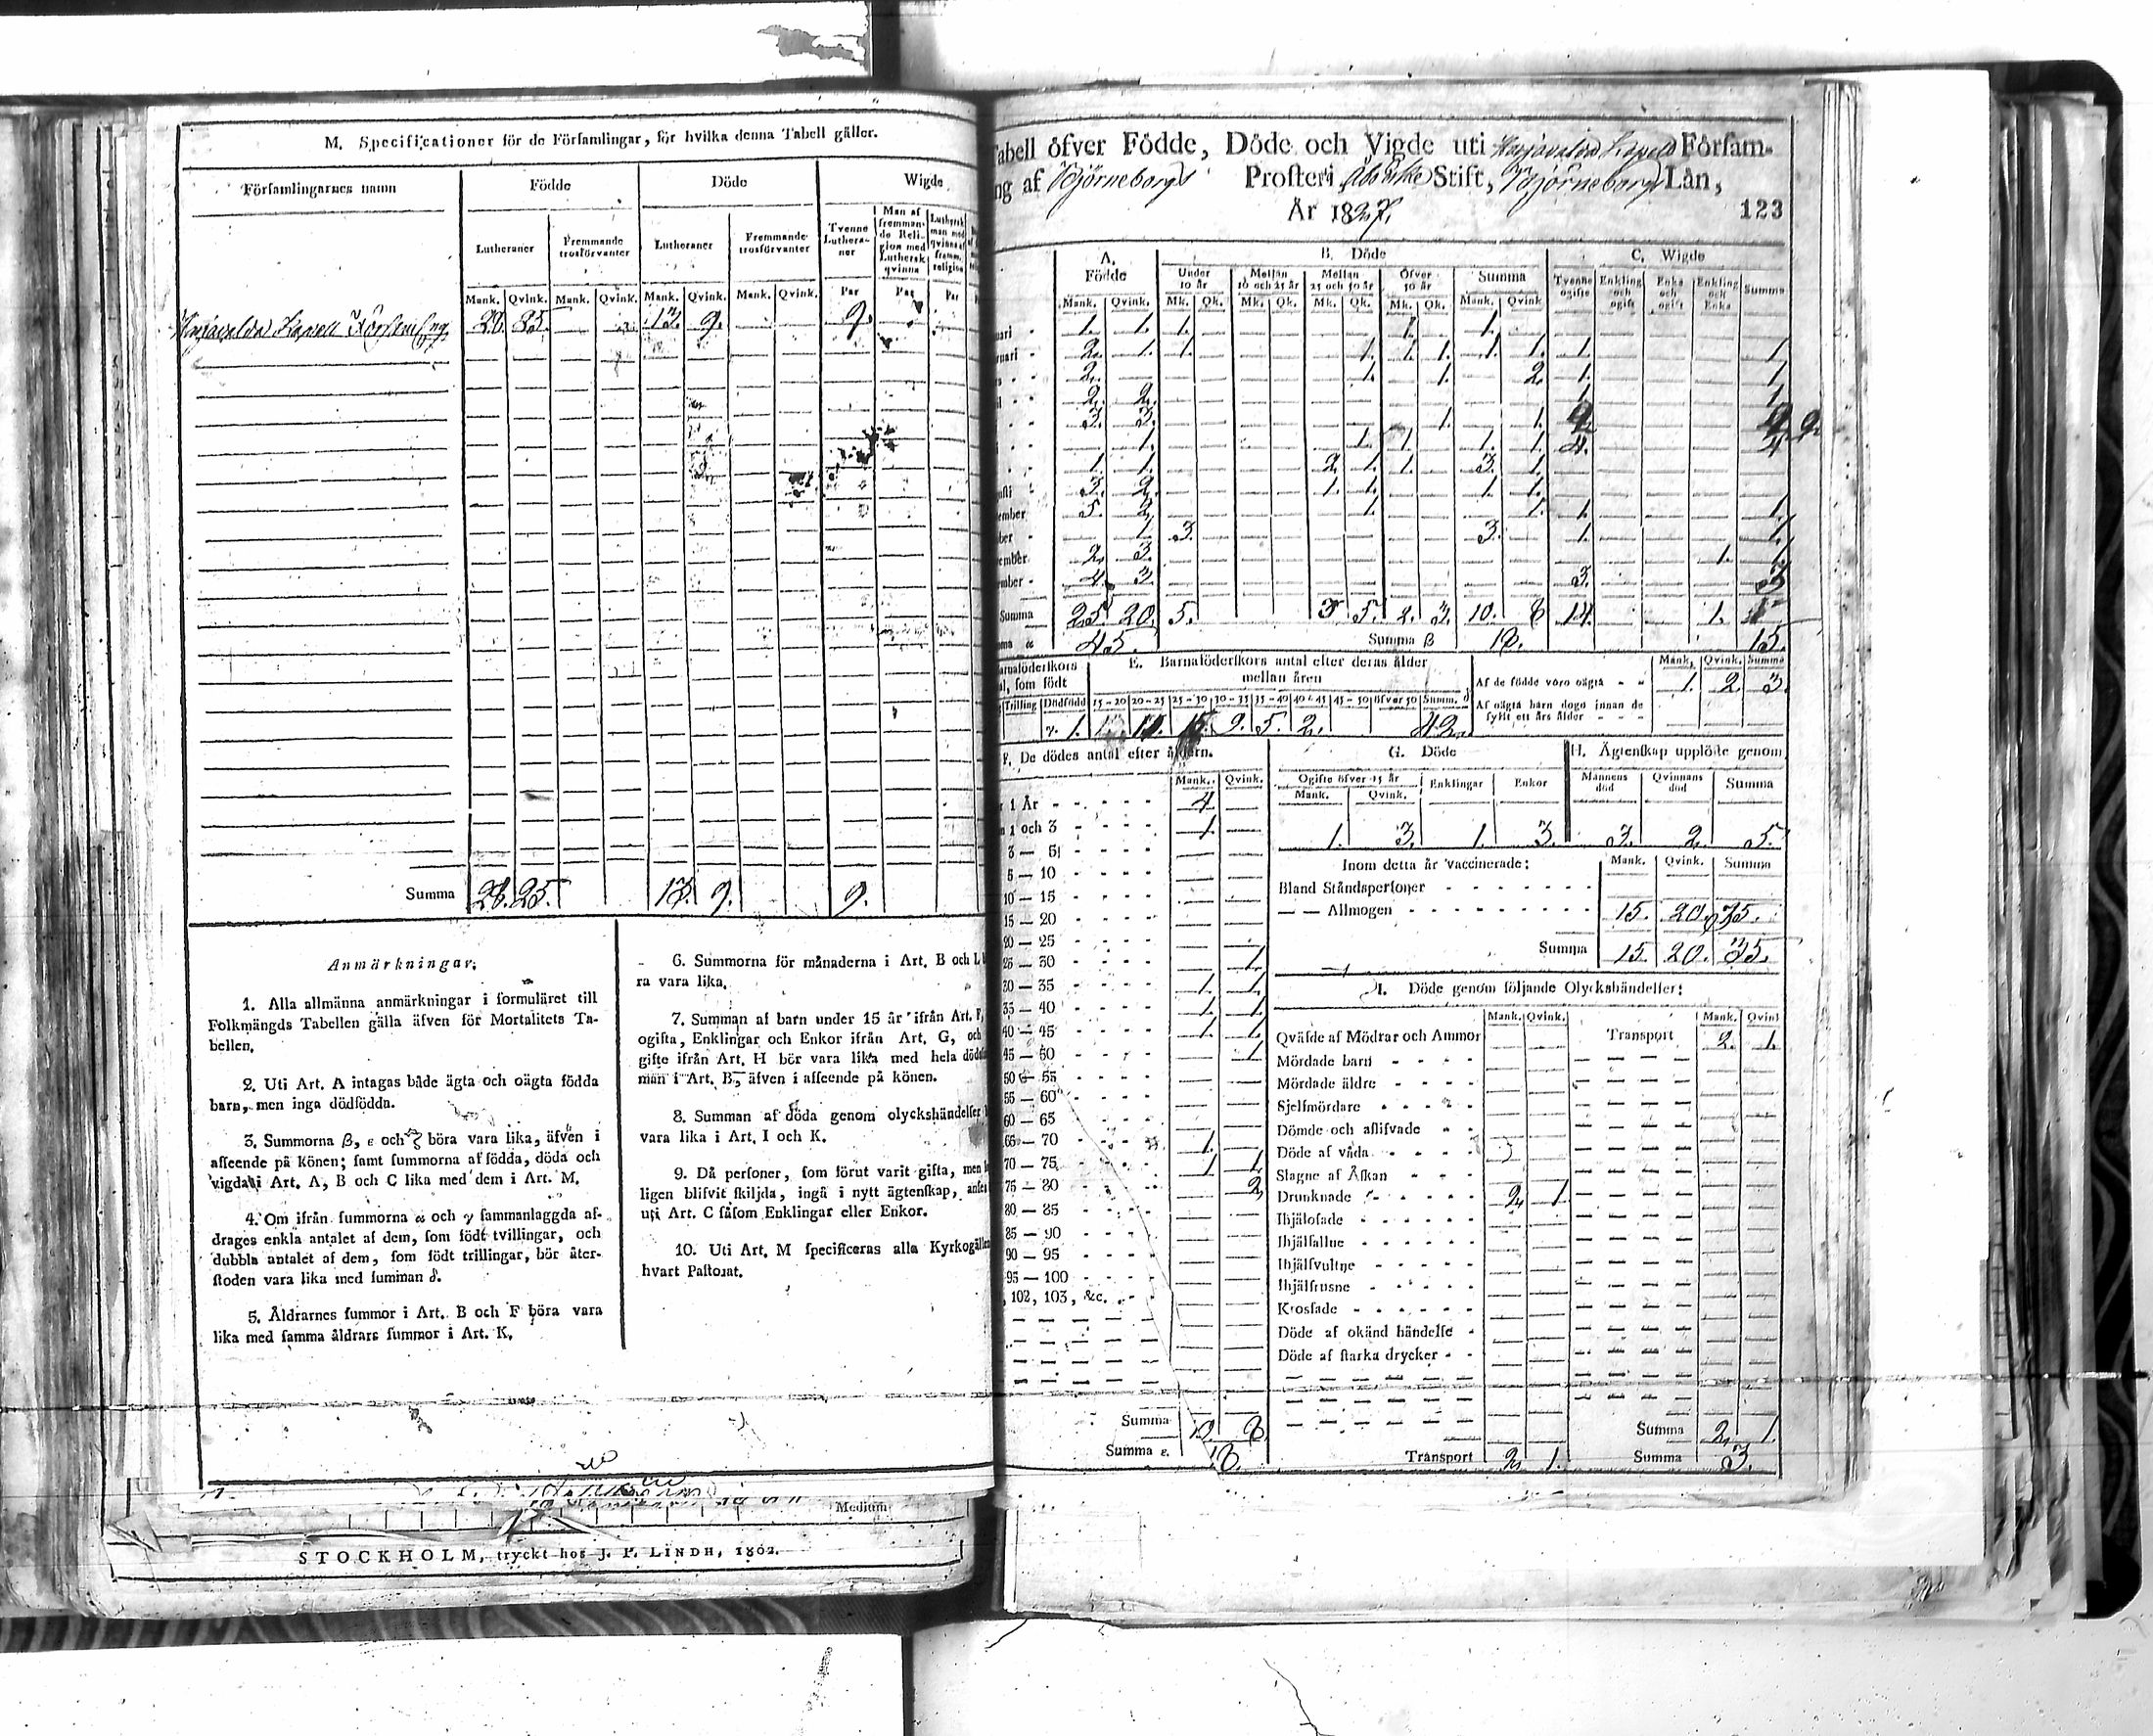 M. Specificationer för de Församlingar, för hvilka denna Tabell gäller.
Församlingarnes namn Födde Döde Wigde
Lutheraner Fremmande trosförvanter Lutheraner Fremmande trosförvanter Tvenne Lutheraner Man af fremmande Religion med Luthersk qvinna Luthersk man med qvinna af framm. religion
Mank. Qvink. Mank. Qvink. Mank. Qvink. Mank. Qvink. Par Par Par
Harjavalda Kapell Församling 28. 25. 13. 9. 9.
Summa 28. 25. 13. 9. 9.
Anmärkningar.
1. Alla allmänna anmärkningar i formuläret till
Folkmängds Tabellen gälla äfven för Mortalitets Ta-
bellen.
2. Uti Art. A intagas både ägta och oägta födda
barn, men inga dödfödda.
3. Summorna β, ε och ζ böra vara lika, äfven i
afseende på könen; samt summorna af födda, döda och
vigda i Art. A, B och C lika med dem i Art. M.
4. Om ifrån summorna α och γ sammanlaggda af-
drages enkla antalet af dem, som födt tvillingar, och
dubbla antalet af dem, som födt trillingar, bör åter-
stoden vara lika med summan δ.
5. Åldrarnes summor i Art. B och F böra vara
lika med samma åldrars summor i Art. K.
6. Summorna för månaderna i Art. B och L
ra vara lika.
7. Summan af barn under 15 år ifrån Art. F,
ogifta, Enklingar och Enkor ifrån Art. G, och
gifte ifrån Art. H bör vara lika med hela
man i Art. B, äfven i afseende på könen.
8. Summan af döda genom olyckshändelser
vara lika i Art. I och K.
9. Då personer, som förut varit gifta, men
ligen blifvit skiljda, ingå i nytt ägtenskap,
uti Art. C såsom Enklingar eller Enkor.
10. Uti Art. M specificeras alla
hvart Pastorat.
Medium
STOCKHOLM, tryckt hos J. P. LINDH, 1802.
Tabell öfver Födde, Döde och Vigde uti Harjavalda Kapell Försam-
ng af Björneborgs Prosteri Åbo Erke Stift, Björneborgs Län,
År 1827.
123
A. Födde B. Döde C. Wigde
Under 10 år Mellan 10 och 25 år Mellan 25 och 50 år Öfver 50 år Summa Tvenne ogifte Enkling och ogift Enka och ogift Enkling och Enka Summa
Mank. Qvink. Mk. Qk. Mk. Qk. Mk. Qk. Mk. Qk. Mank. Qvink.
uari 1. 1. 1. 1. 1.
ruari 2. 1. 1. 1. 1. 1. 1. 1. 1. 1.
2. 1. 1. 2. 1. 1.
2. 2. 1. 1.
3. 3. 1. 1. 2 2 2
1. 1. 1. 1. 1. 4. 4
1. 1. 2. 1. 1. 3. 1.
usti 3. 2. 1. 1. 1. 1.
ember 5. 2. 1. 1. 1. 1.
ber 1. 3. 3. 1. 1.
ember 2. 3. 1. 1
ember 4. 3. 3. 3
Summa 25. 20. 5. 3 5. 2. 3. 10. 8 14. 1.
ma α 45. Summa β 18. 15.
E. Barnaföderskors antal efter deras ålder
mellan åren
arnaföderskors
al, som födt
Trilling Dödfödd 15–20 20–25 25–30 30–35 35–40 40–45 45–50 öfver 50 Summ. δ
γ. 1. 9. 5. 2. 42.
Mank. Qvink. Summa
Af de födde voro oägta 1. 2. 3.
Af oägta barn dogo innan de
fyllt ett års ålder
F. De dödes antal efter åldern.
Mank. Qvink.
1 År 4
1 och 3 1.
3 — 5
5 — 10
10 — 15
15 — 20
20 — 25
25 — 30 1.
30 — 35 1. 1.
35 — 40 1. 1.
40 — 45 1. 1.
45 — 50 1
50 — 55
55 — 60
60 — 65
65 — 70 1.
70 — 75 1. 1.
75 — 80 2
80 — 85
85 — 90
90 — 95
95 — 100
, 102, 103, &c.
Summa 8.
Summa ε. 18.
G. Döde
Ogifte öfver 15 år Enklingar Enkor
Mank. Qvink.
1. 3. 1. 3.
H. Ägtenskap upplöste genom
Mannens död Qvinnans död Summa
3. 2. 5.
Inom detta år vaccinerade: Mank. Qvink. Summa
Bland Ståndspersoner
— — Allmogen 15. 20. 35.
Summa 15. 20. 35.
I. Döde genom följande Olyckshändelser:
Mank. Qvink. Mank.
Qväfde af Mödrar och Ammor Transport 2. 1.
Mördade barn
Mördade äldre
Sjelfmördare
Dömde och aflifvade
Döde af våda
Slagne af Åskan
Drunknade 2 1
Ihjälosade
Ihjälfallne
Ihjälsvultne
Ihjälfrusne
Krossade
Döde af okänd händelse
Döde af starka drycker
Summa 2. 1.
Transport 2 1. Summa 3.